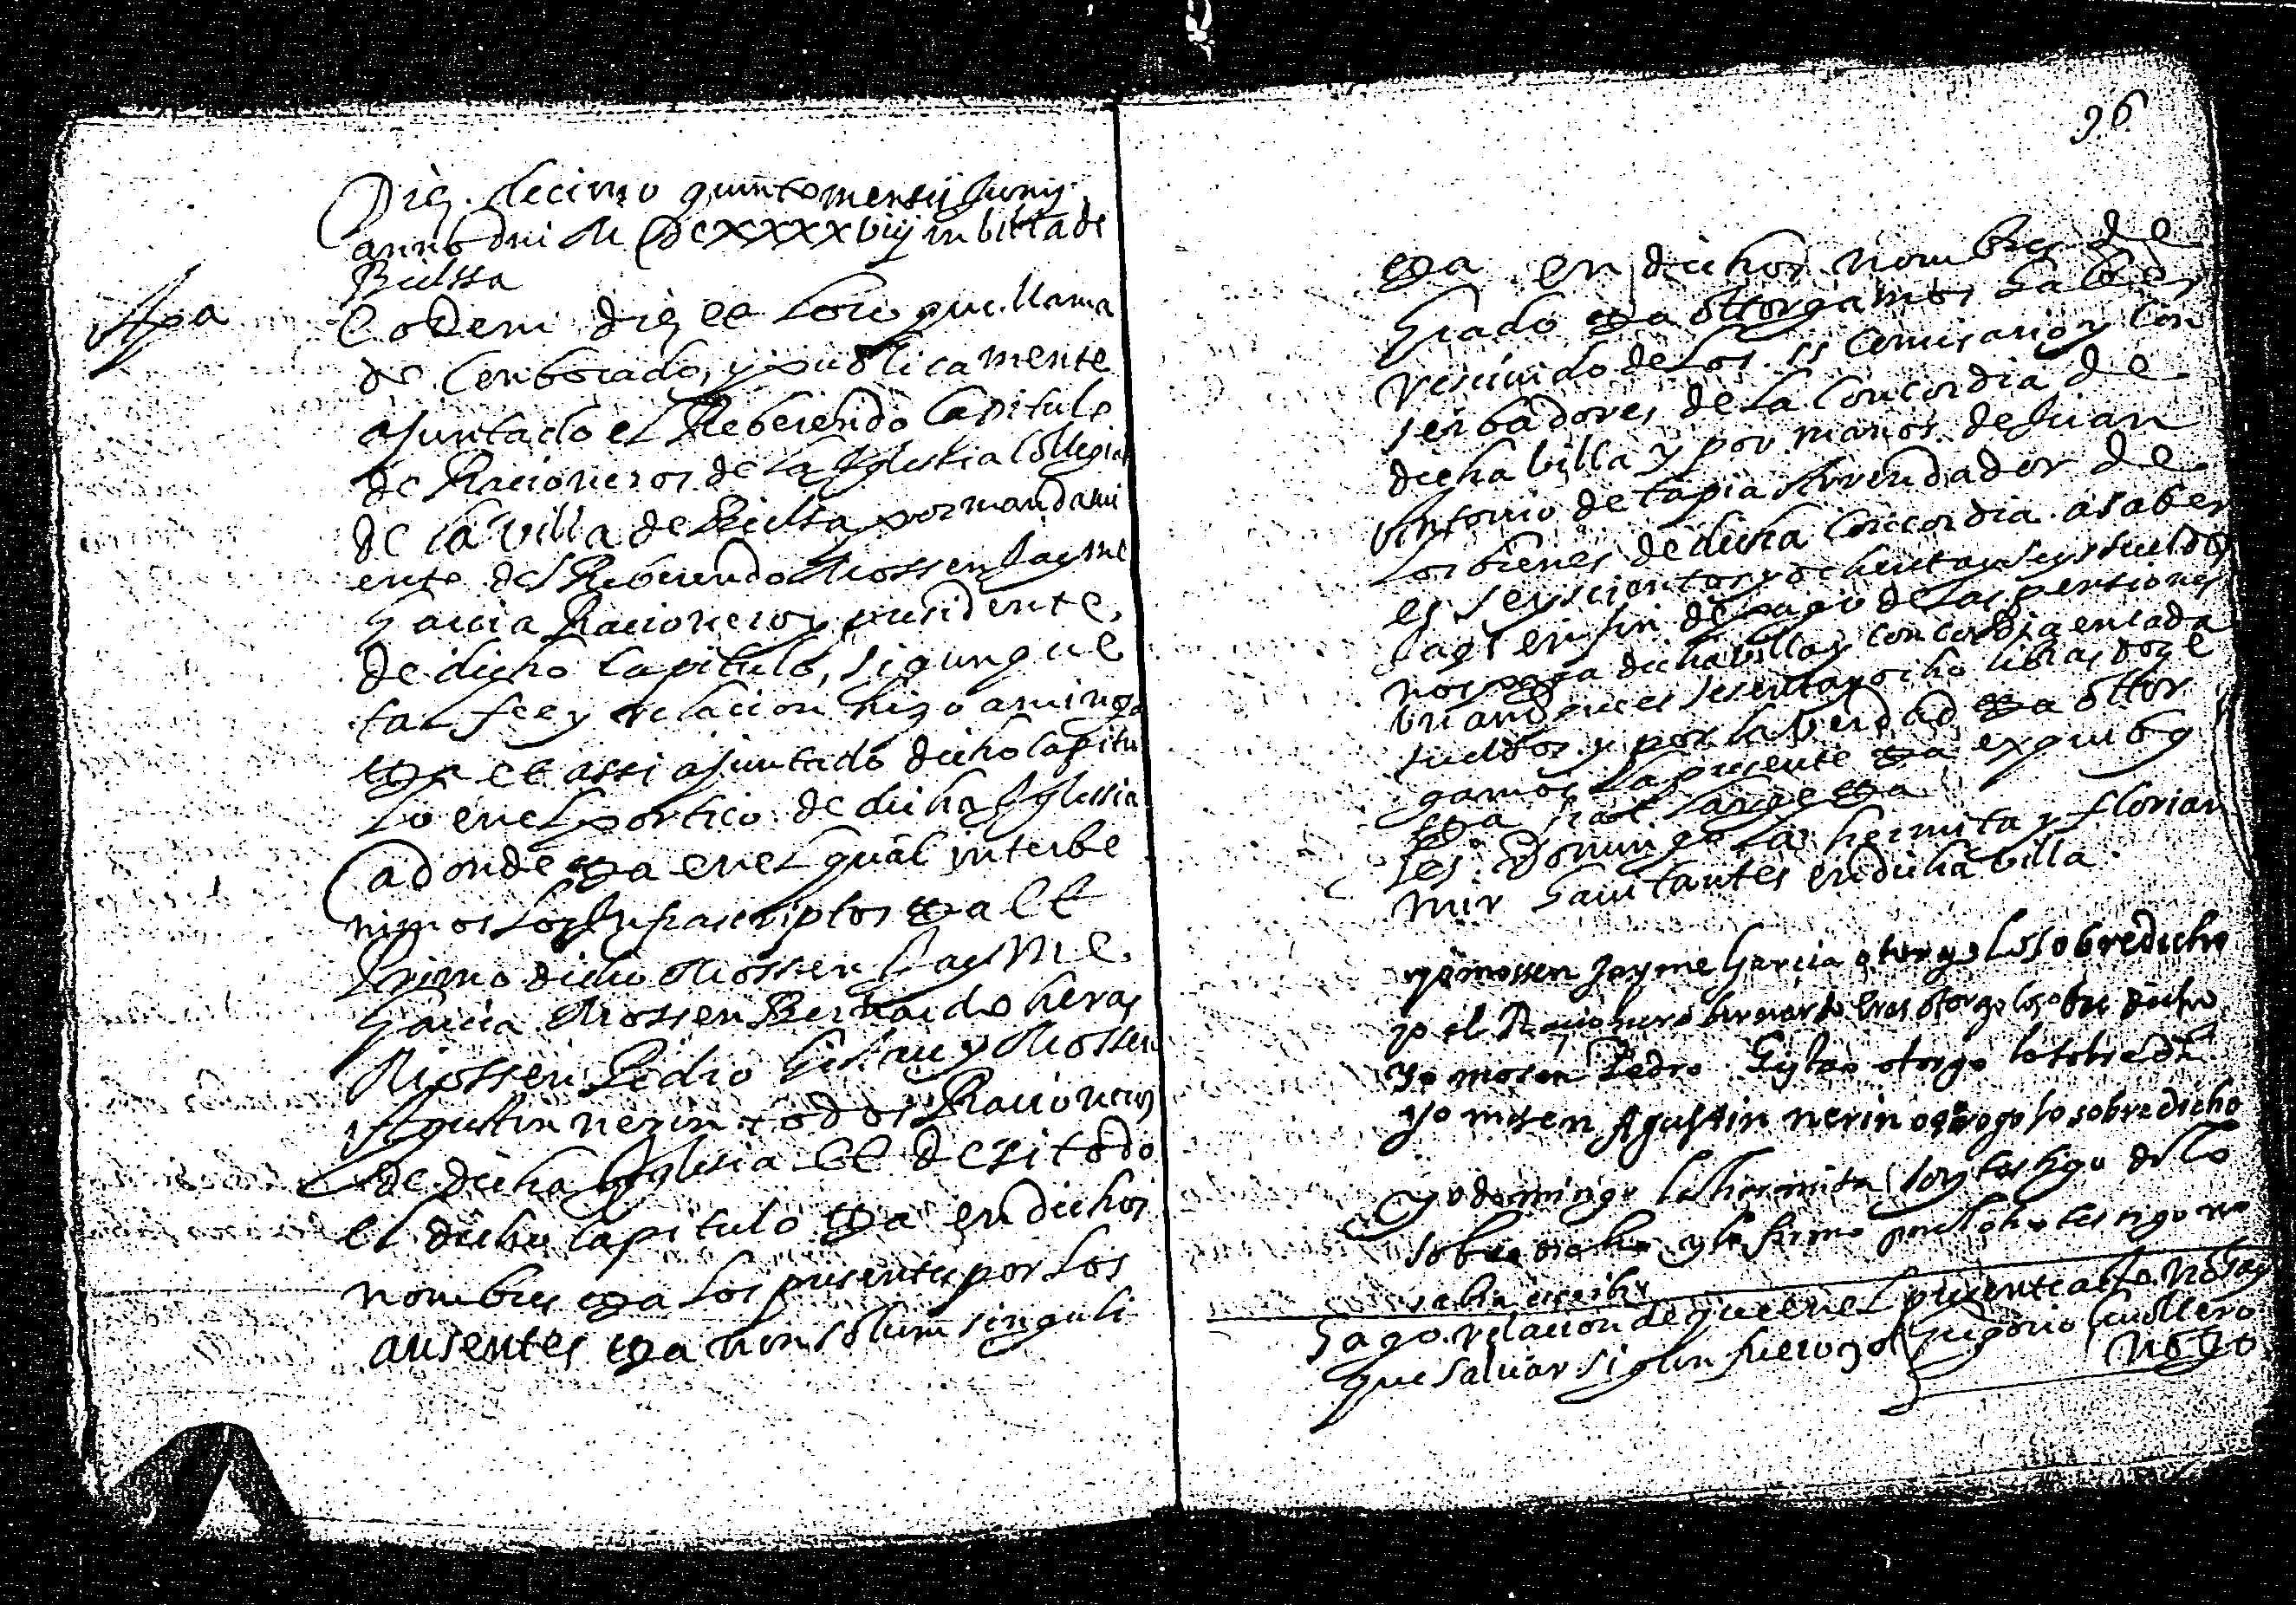 Die decimo quinto mensis Junij
anno dni M DCXXXXviij in billa de
Bielssa
Apa
Eodem die et loco que llama
de Conbocado, y publicamente
ajuntado el Reberendo Capitulo
de Racioneros de la Iglesia Collegial
de la Villa de Bielsa por mandami
ento del Reberendo Mossen Jayme
Garcia Racionero y presidente
de dicho Capitulo, sigun que
tal fee y relacion hizo a mi nor
et assi ajuntado dicho Capitu
lo en el portico de dicha Iglessia
adonde ega en el qual interbe
nimos los Infrascriptos ega Et
Primo dicho Mossen Jayme
Garcia Mossen Bernardo heras
Mossen Pedro Gistau y Mossen
Agustin nerin todos Racioneros
de dicha Iglesia et de si todo
el dicho Capitulo ega en dichos
nombres ega los presentes por los
ausentes ega non solum singuli
96
ega en dichos nombres de
Grado ega ottorgamos haber
rescivido de los ss comisario y Con
serbadores de la Concordia de
dicha billa y por manos de Juan
Antonio de tapia Arrendador de
los bienes de dicha Concordia a saber
es seyscientos y ochenta y seys sueldos
Jaqs en fin de pago de las pensiones
nos paga dicha billa y concordia en cada
un año que es sesenta y ocho libras doze
sueldos y por la verdad ega ottor
gamos la presente ega ex quibus
ega fiat large ega
Tes Domingo la hermita y florian
mir havitantes en dicha villa
yo mossen Jayme Garcia otorgo lo sobredicho
yo el Racionero bernardo eras otorgo lo sobre dicho
yo mosen Pedro Gistao otorgo lo sobre dho
yo mosen Agustin nerin otorgo lo sobre dicho
yo domingo la hermita soy testigo de lo
sobre dicho y lo firmo por el otro testigo no
sabia escribir
Hago relacion de que en el presente acto no ay
que salvar sigun fuero Gregorio Cavallero
noto